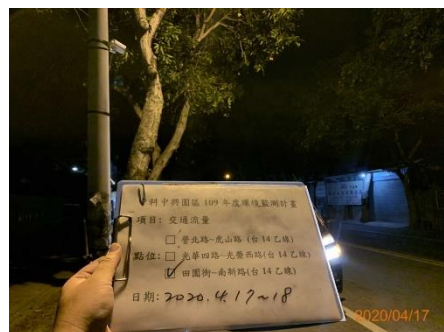 中科中興園區 109 年度環境監測計畫
項目: 交通流量
□ 營北路~虎山路 (台 14 乙線)
點位: □ 光華四路~光榮西路(台 14 乙線)
☑ 田園街~南新路(台 14 乙線)
日期: 2020.4.17~18
2020/04/17